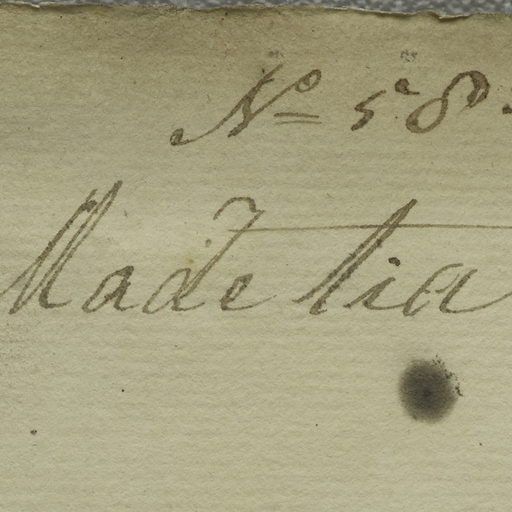 No 58
Made tia